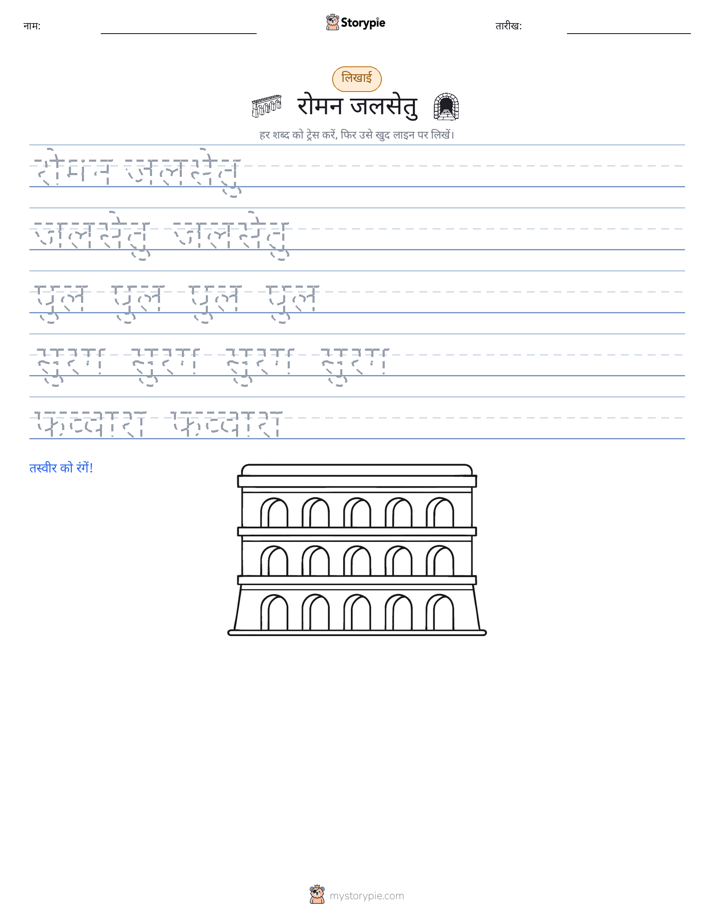 नाम:
Storypie
तारीख:
लिखाई
रोमन जलसेतु
हर शब्द को ट्रेस करें, फिर उसे खुद लाइन पर लिखें।
रोमन जलसेतु
जलसेतु जलसेतु
पुल पुल पुल पुल
सुरंग सुरंग सुरंग सुरंग
फव्वारा फव्वारा
तस्वीर को रंगें!
mystorypie.com